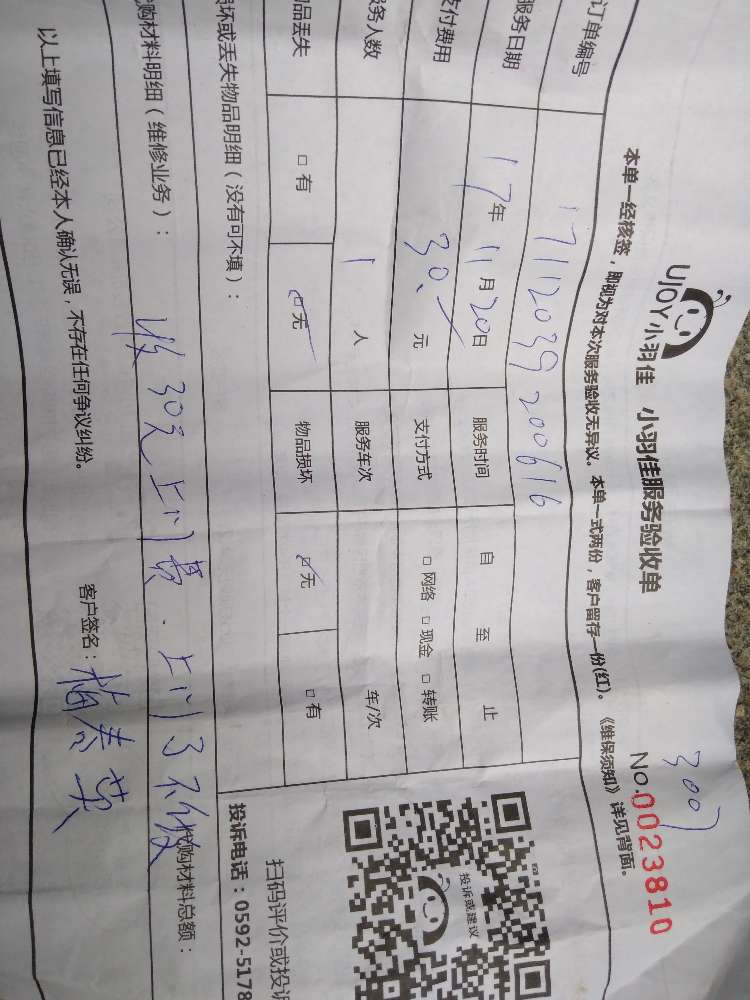 3007
UJOY小羽佳 小羽佳服务验收单 No.0023810
本单一经核签，即视为对本次服务验收无异议。本单一式两份，客户留存一份(红)。《维保须知》详见背面。
订单编号 17112039200616
服务日期 17年11月20日 服务时间 自 至 止
支付费用 30.元 支付方式 □网络 □现金 □转账
服务人数 1人 服务车次 车/次
物品丢失 □有 □无 物品损坏 □无 □有
损坏或丢失物品明细（没有可不填）：
代购材料明细（维修业务）： 代购材料总额：
收30元上门费.上门了不做
以上填写信息已经本人确认无误，不存在任何争议纠纷。 客户签名：梅秀英
投诉或建议
扫码评价或投诉
投诉电话：0592-5178